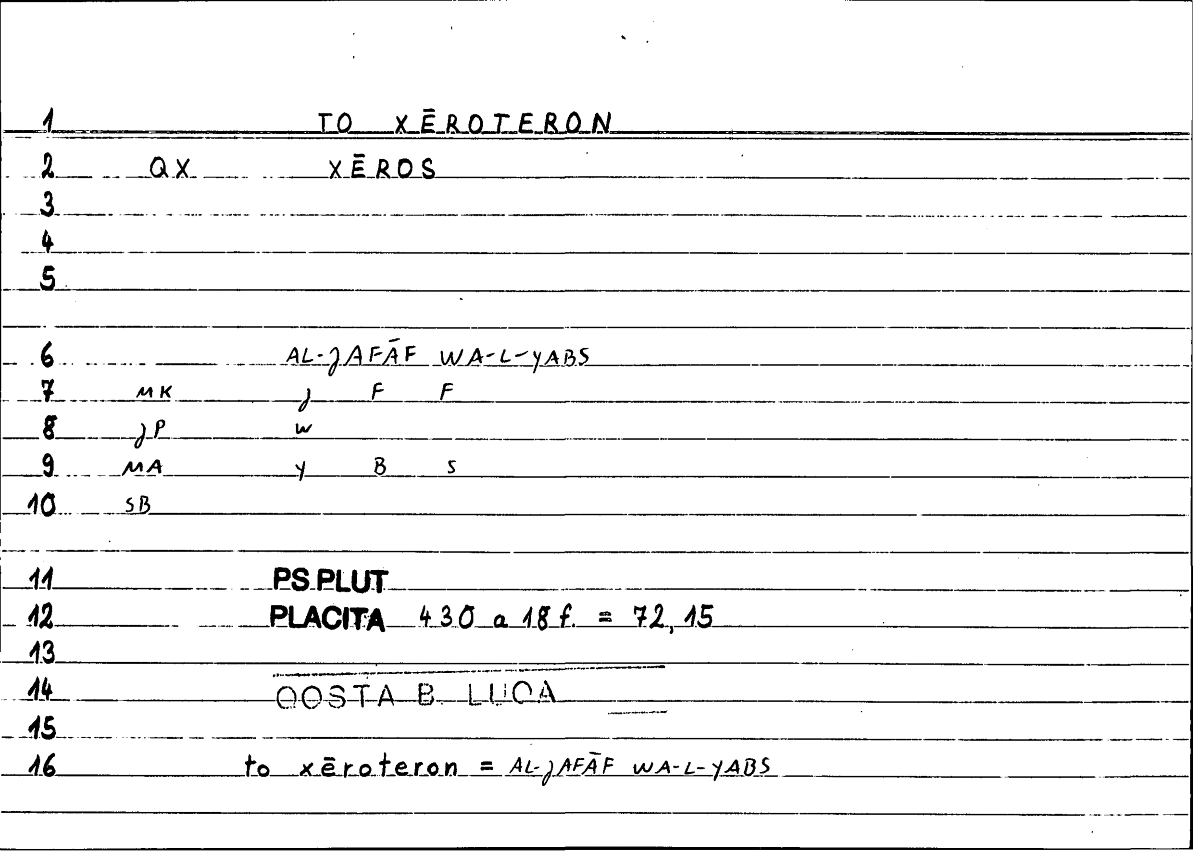 1 TO XĒROTERON
2 QX XĒROS
3
4
5
6 AL-JAFĀF WA-L-YABS
7 MK J F F
8 JP W
9 MA Y B S
10 SB
11 PS.PLUT
12 PLACITA 430 a 18 f. = 72, 15
13
14 QOSTA B. LUQA
15
16 to xēroteron = AL-JAFĀF WA-L-YABS